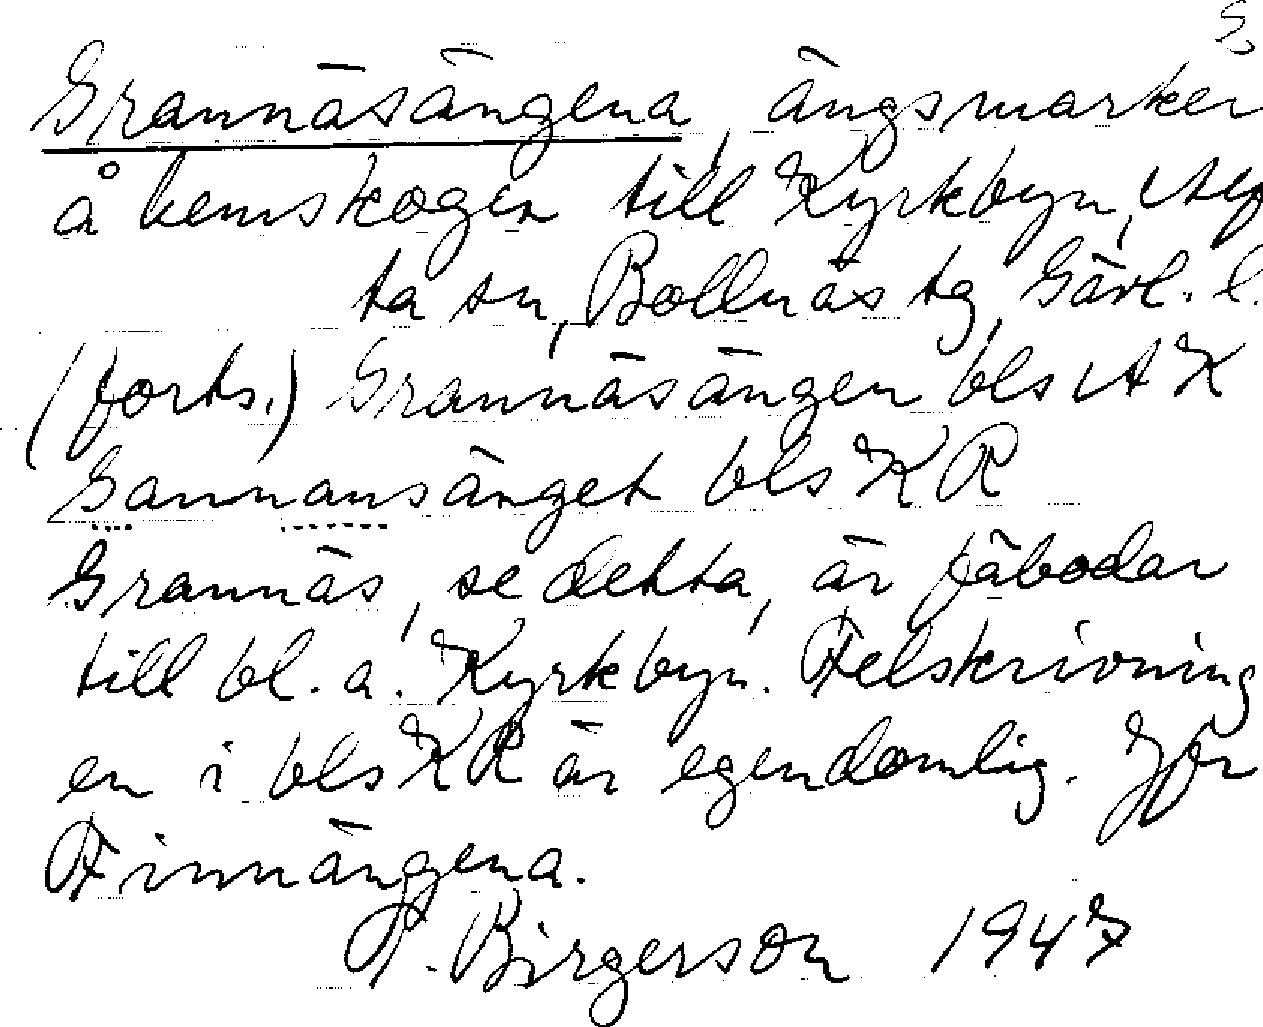 Grannäsängena, ängsmarker
å hemskogen till Kyrkbyn, Alf
ta sn, Bollnäs tg, Gävl. l.
(forts.) Grannäsängen bls AK
Gannansänget bls KR
Grannäs, se detta, är fäbodar
till bl. a. Kyrkbyn. Felskrivning
en i bls KR är egendomlig. Jfr
Finnängena.
F. Birgerson 1947